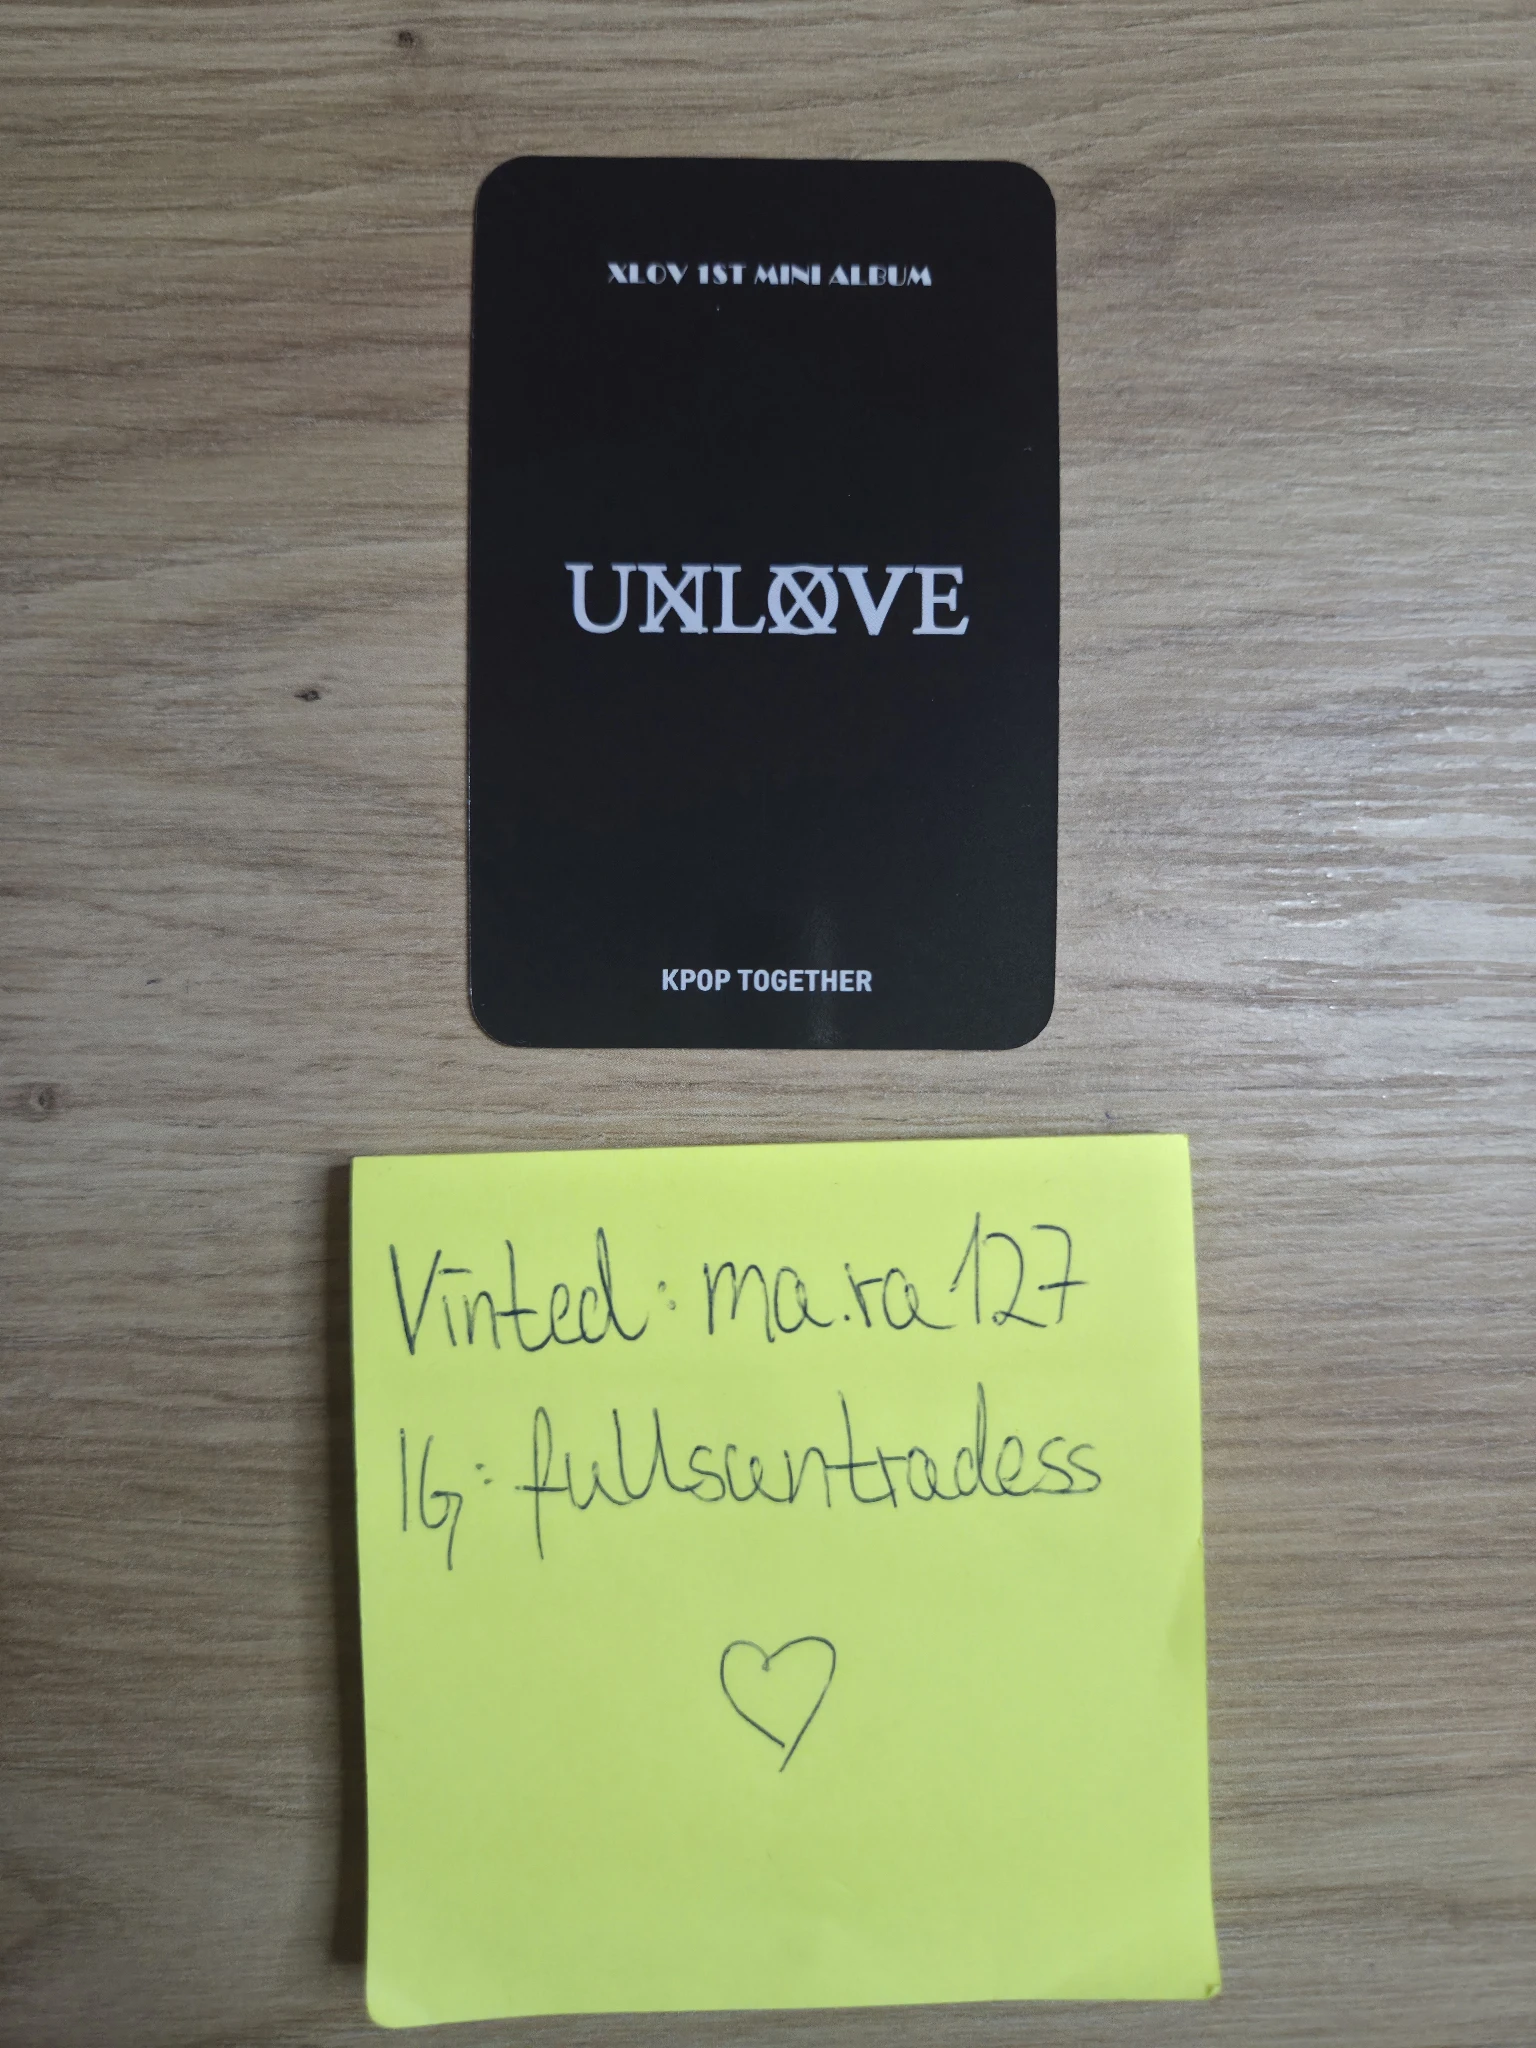 XLOV 1ST MINI ALBUM
UNLOVE
KPOP TOGETHER
Vinted: ma.ra127
IG: fullsuntradess